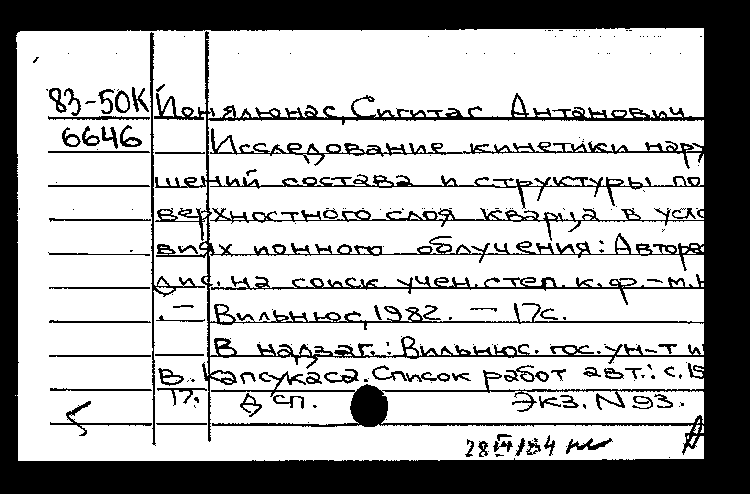 83-50К Йонялюнас, Сигитас Антанович.
6646 Исследование кинетики нару
шений состава и структуры по
верхностного слоя кварца в усло
виях ионного облучения: Авторе
дис. на соиск. учен. степ. к. ф.-м. н
.— Вильнюс, 1982. — 17с.
В надзаг.: Вильнюс. гос. ун-т и
В. Капсукаса. Список работ авт.: с. 15
17. Д сп. Экз. N 93.
28 /84